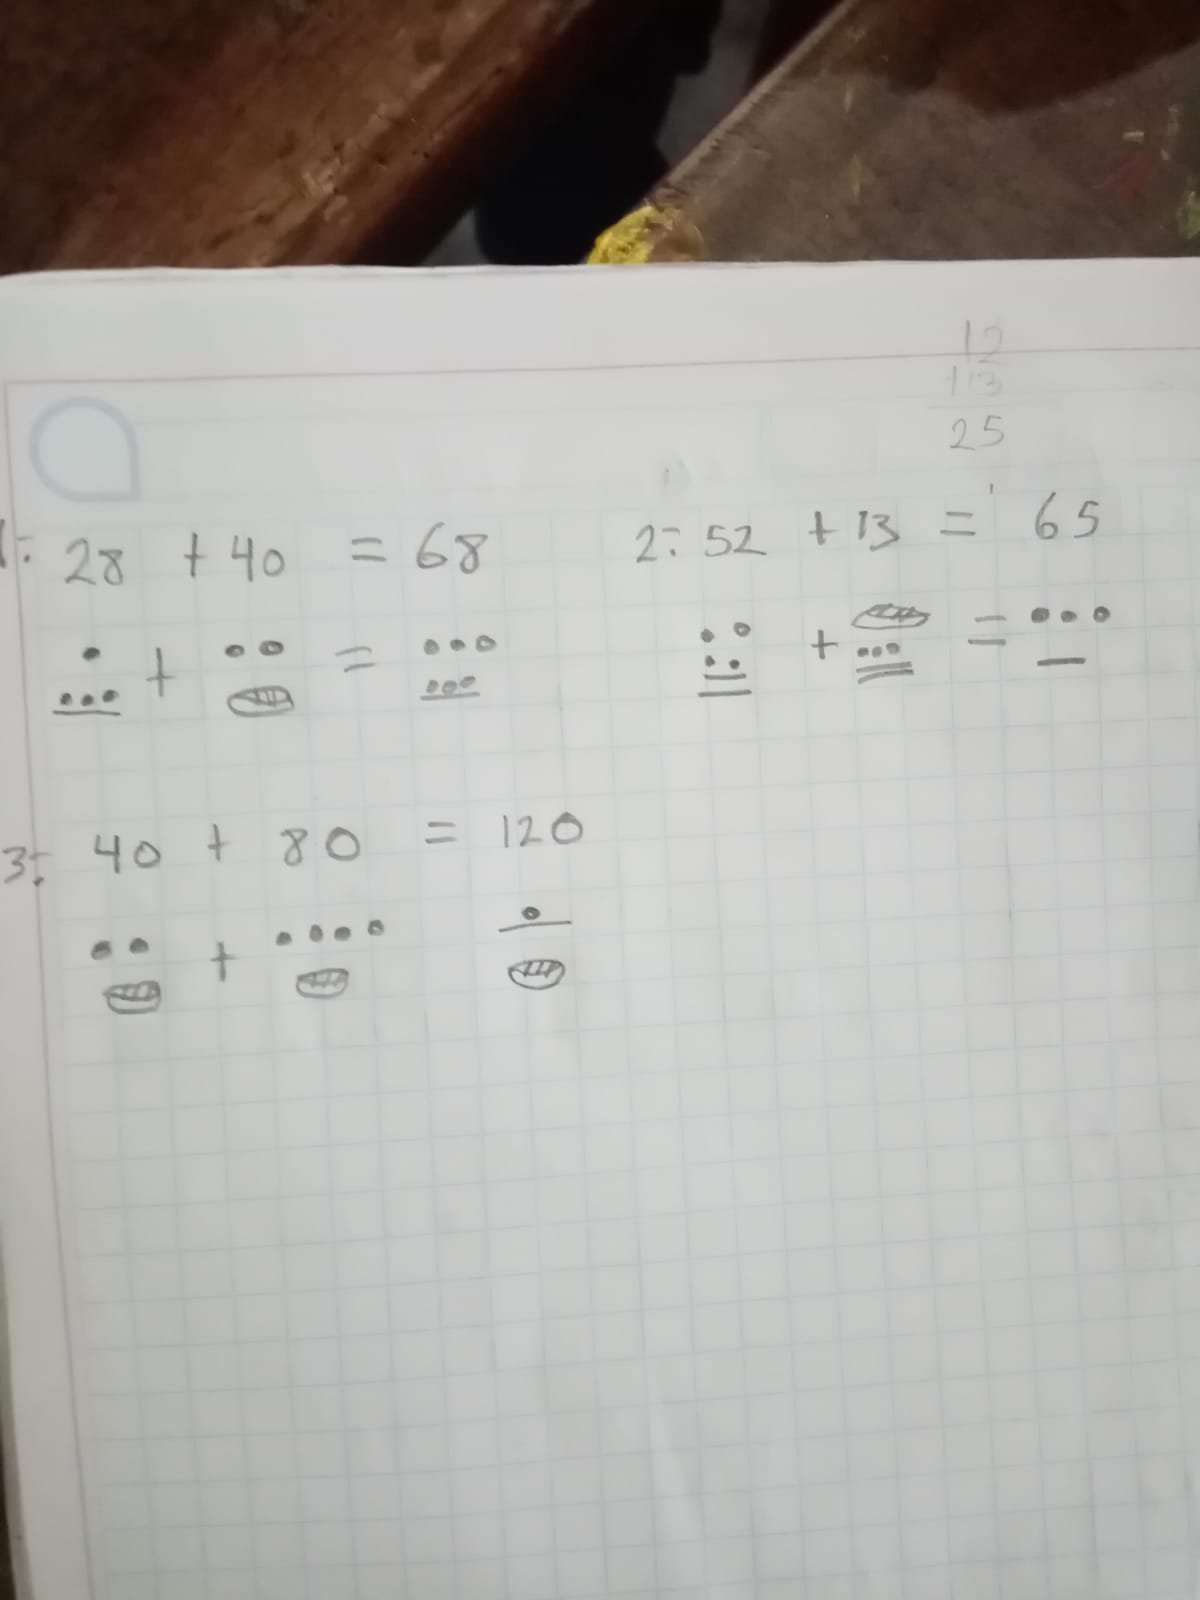 12
+13
25
1:- 28 + 40 = 68
2:- 52 + 13 = 65
+ =
+ =
3:- 40 + 80 = 120
+